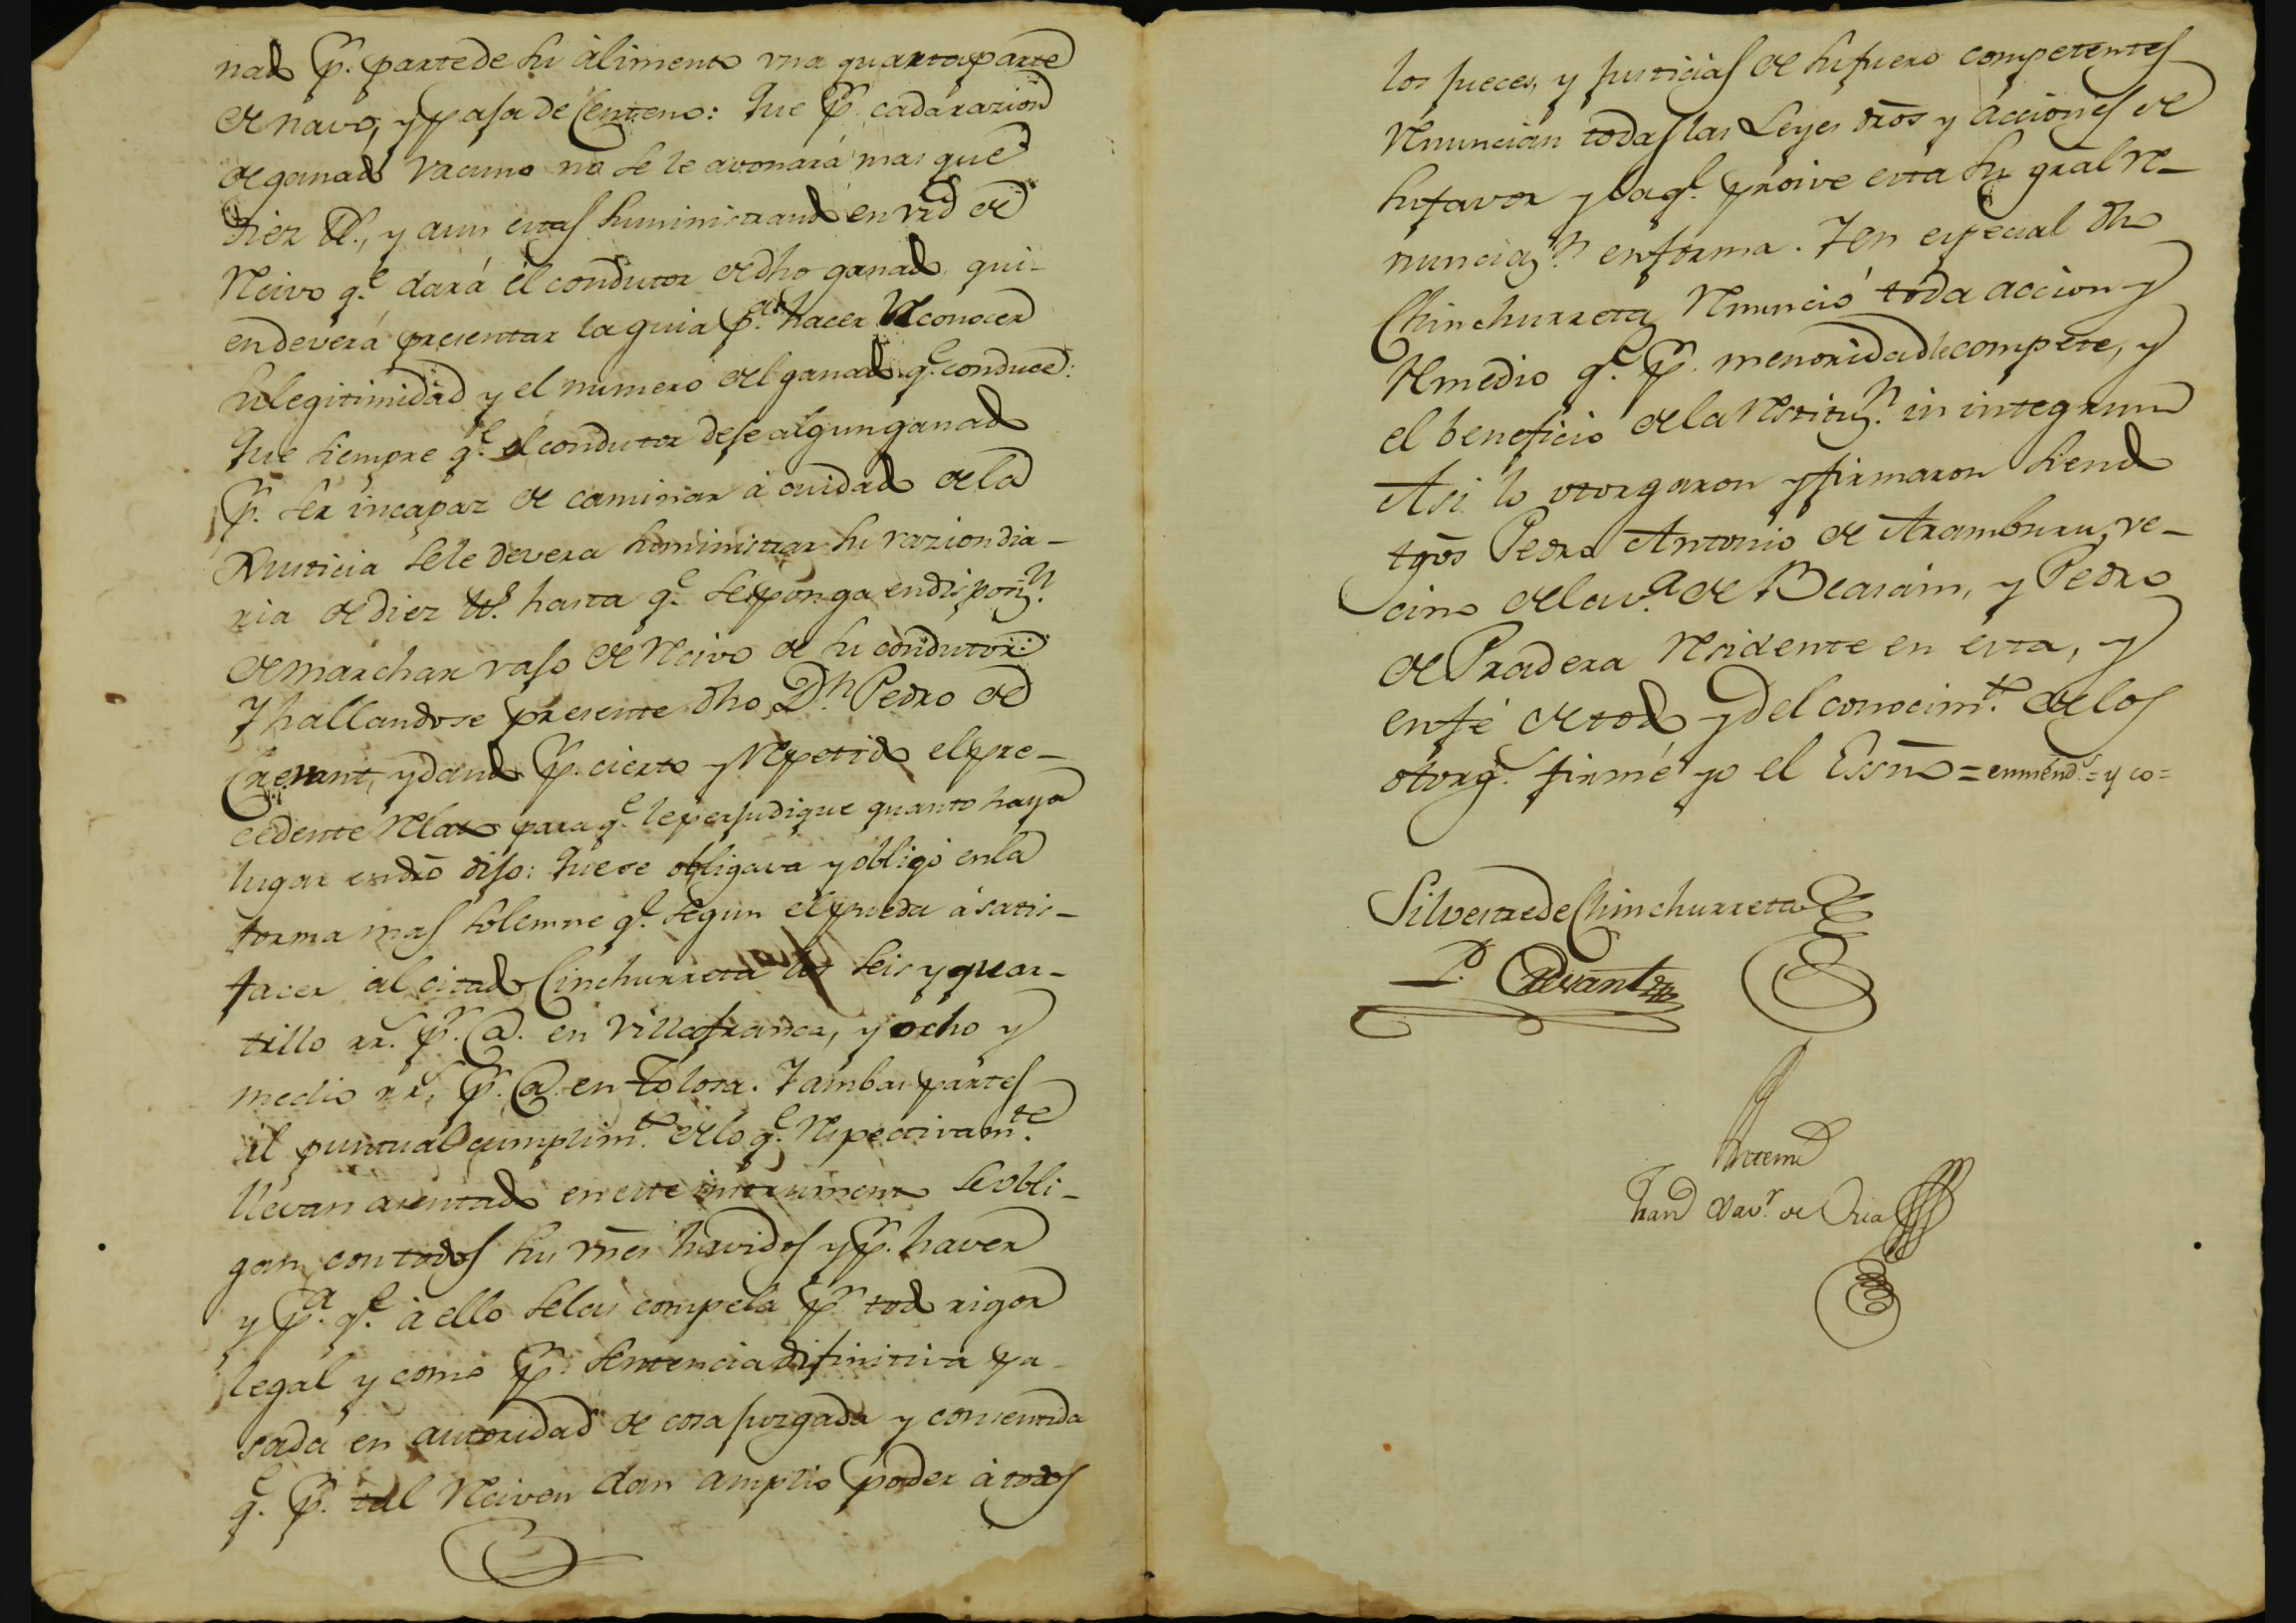 nado pr. parte de su alimento una quarta parte
de navo, y paja de Centeno: Que pr. cada razion
de ganado vacuno no se le avonará mas que
diez ll., y aun estas suministrando en vrd de
Recivo qe. dará el condutor de dho ganado, qui-
en deverá presentar la guia pa. hacer reconocer
su legitimidad y el numero del ganado qe. conduce:
Que siempre qe. el condutor deje algun ganado
pr. ser incapaz de caminar à cuidado de la
Justicia se le devera suministrar su razion dia-
ria de diez ll. hasta qe. se ponga en disposizn.
de marchar vajo de Recivo de su condutor:
Y hallandose presente dho Dn. Pedro de
Crevant, y dando pr. cierto y Repetido el pre-
cedente Relato para qe. le perjudique quanto haya
lugar en dro dijo: Que se obligava y obligó en la
forma mas solemne qe. segun el pueda à satis-
facer al citado Chinchurreta los seis y quar-
tillo rrs. pr. @. en Villafranca, y ocho y
medio rrs. pr. @. en Tolosa. Y ambas partes
al puntual cumplimto. de lo qe. Respectivamte.
llevan asentado en este instrumento se obli-
gan con todos sus vnes havidos y pr. haver
y pa. qe. à ello se les compela pr. todo rigor
legal y como pr. sentencia difinitiva pa-
sada en autoridad de cosa juzgada y consentida
qe. pr. tal Reciven dan amplio poder à todos
los jueces, y justicias de su fuero competentes
Renuncian todas las Leyes dros y acciones de
su favor y la qe. proive esta su gral re-
nunciazn. en forma. Y en especial dho
Chinchurreta Renunció toda accion y
Remedio qe. pr. menoridad le compete, y
el beneficio de la Restituzn. in integrum
Asi lo otorgaron y firmaron siendo
tgos Pedro Antonio de Aramburu, ve-
cino de la va. de Beasain, y Pedro
de Pradera Residente en esta, y
en fé de todo y del conocimto. de los
otorgs. firmé yo el Essno = enmendo. = y co =
Silvestre de Chinchurreta
P. Crevant
Antemi
Franco Xavr. de Oria